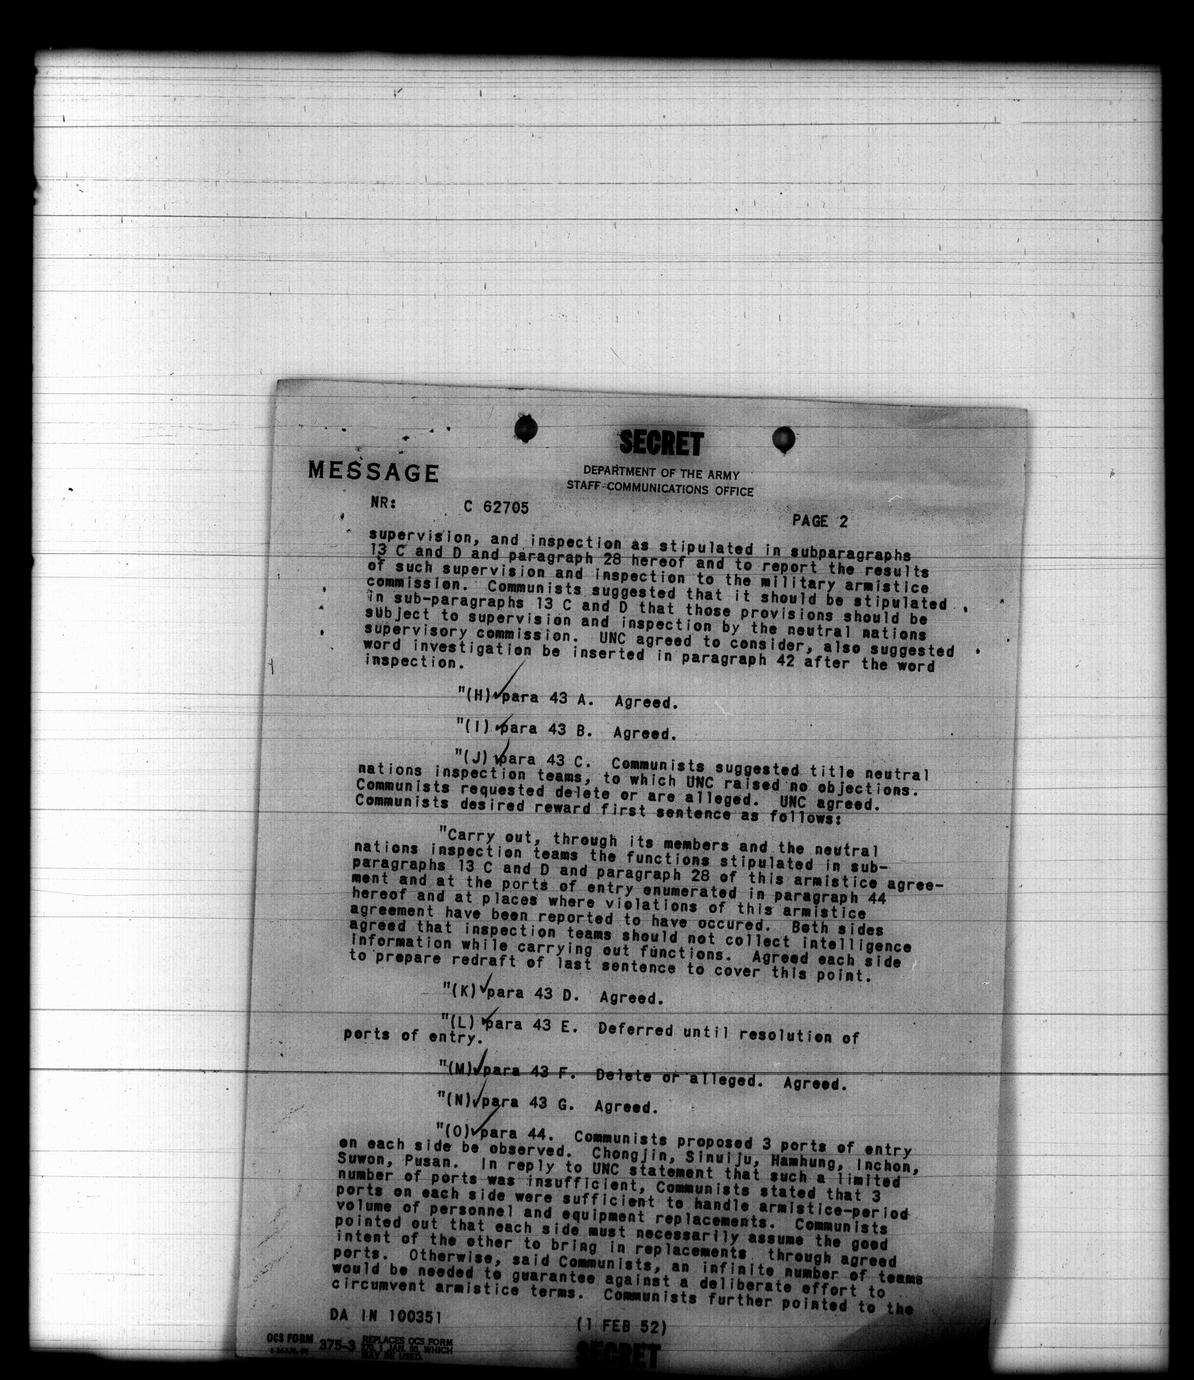 SECRET
MESSAGE
DEPARTMENT OF THE ARMY
STAFF COMMUNICATIONS OFFICE
NR: C 62705
PAGE 2
supervision, and inspection as stipulated in subparagraphs
13 C and D and paragraph 28 hereof and to report the results
of such supervision and inspection to the military armistice
commission. Communists suggested that it should be stipulated
in sub-paragraphs 13 C and D that those provisions should be
subject to supervision and inspection by the neutral nations
supervisory commission. UNC agreed to consider, also suggested
word investigation be inserted in paragraph 42 after the word
inspection.
"(H) para 43 A. Agreed.
"(I) para 43 B. Agreed.
"(J) para 43 C. Communists suggested title neutral
nations inspection teams, to which UNC raised no objections.
Communists requested delete or are alleged. UNC agreed.
Communists desired reward first sentence as follows:
"Carry out, through its members and the neutral
nations inspection teams the functions stipulated in sub-
paragraphs 13 C and D and paragraph 28 of this armistice agree-
ment and at the ports of entry enumerated in paragraph 44
hereof and at places where violations of this armistice
agreement have been reported to have occured. Both sides
agreed that inspection teams should not collect intelligence
information while carrying out functions. Agreed each side
to prepare redraft of last sentence to cover this point.
"(K) para 43 D. Agreed.
"(L) para 43 E. Deferred until resolution of
ports of entry.
"(M) para 43 F. Delete or alleged. Agreed.
"(N) para 43 G. Agreed.
"(O) para 44. Communists proposed 3 ports of entry
on each side be observed. Chongjin, Sinuiju, Hamhung, Inchon,
Suwon, Pusan. In reply to UNC statement that such a limited
number of ports was insufficient, Communists stated that 3
ports on each side were sufficient to handle armistice-period
volume of personnel and equipment replacements. Communists
pointed out that each side must necessarily assume the good
intent of the other to bring in replacements through agreed
ports. Otherwise, said Communists, an infinite number of teams
would be needed to guarantee against a deliberate effort to
circumvent armistice terms. Communists further pointed to the
DA IN 100351
(1 FEB 52)
OCS FORM 375-3 REPLACES OCS FORM
1 JAN. 50, WHICH
MAY BE USED.
SECRET